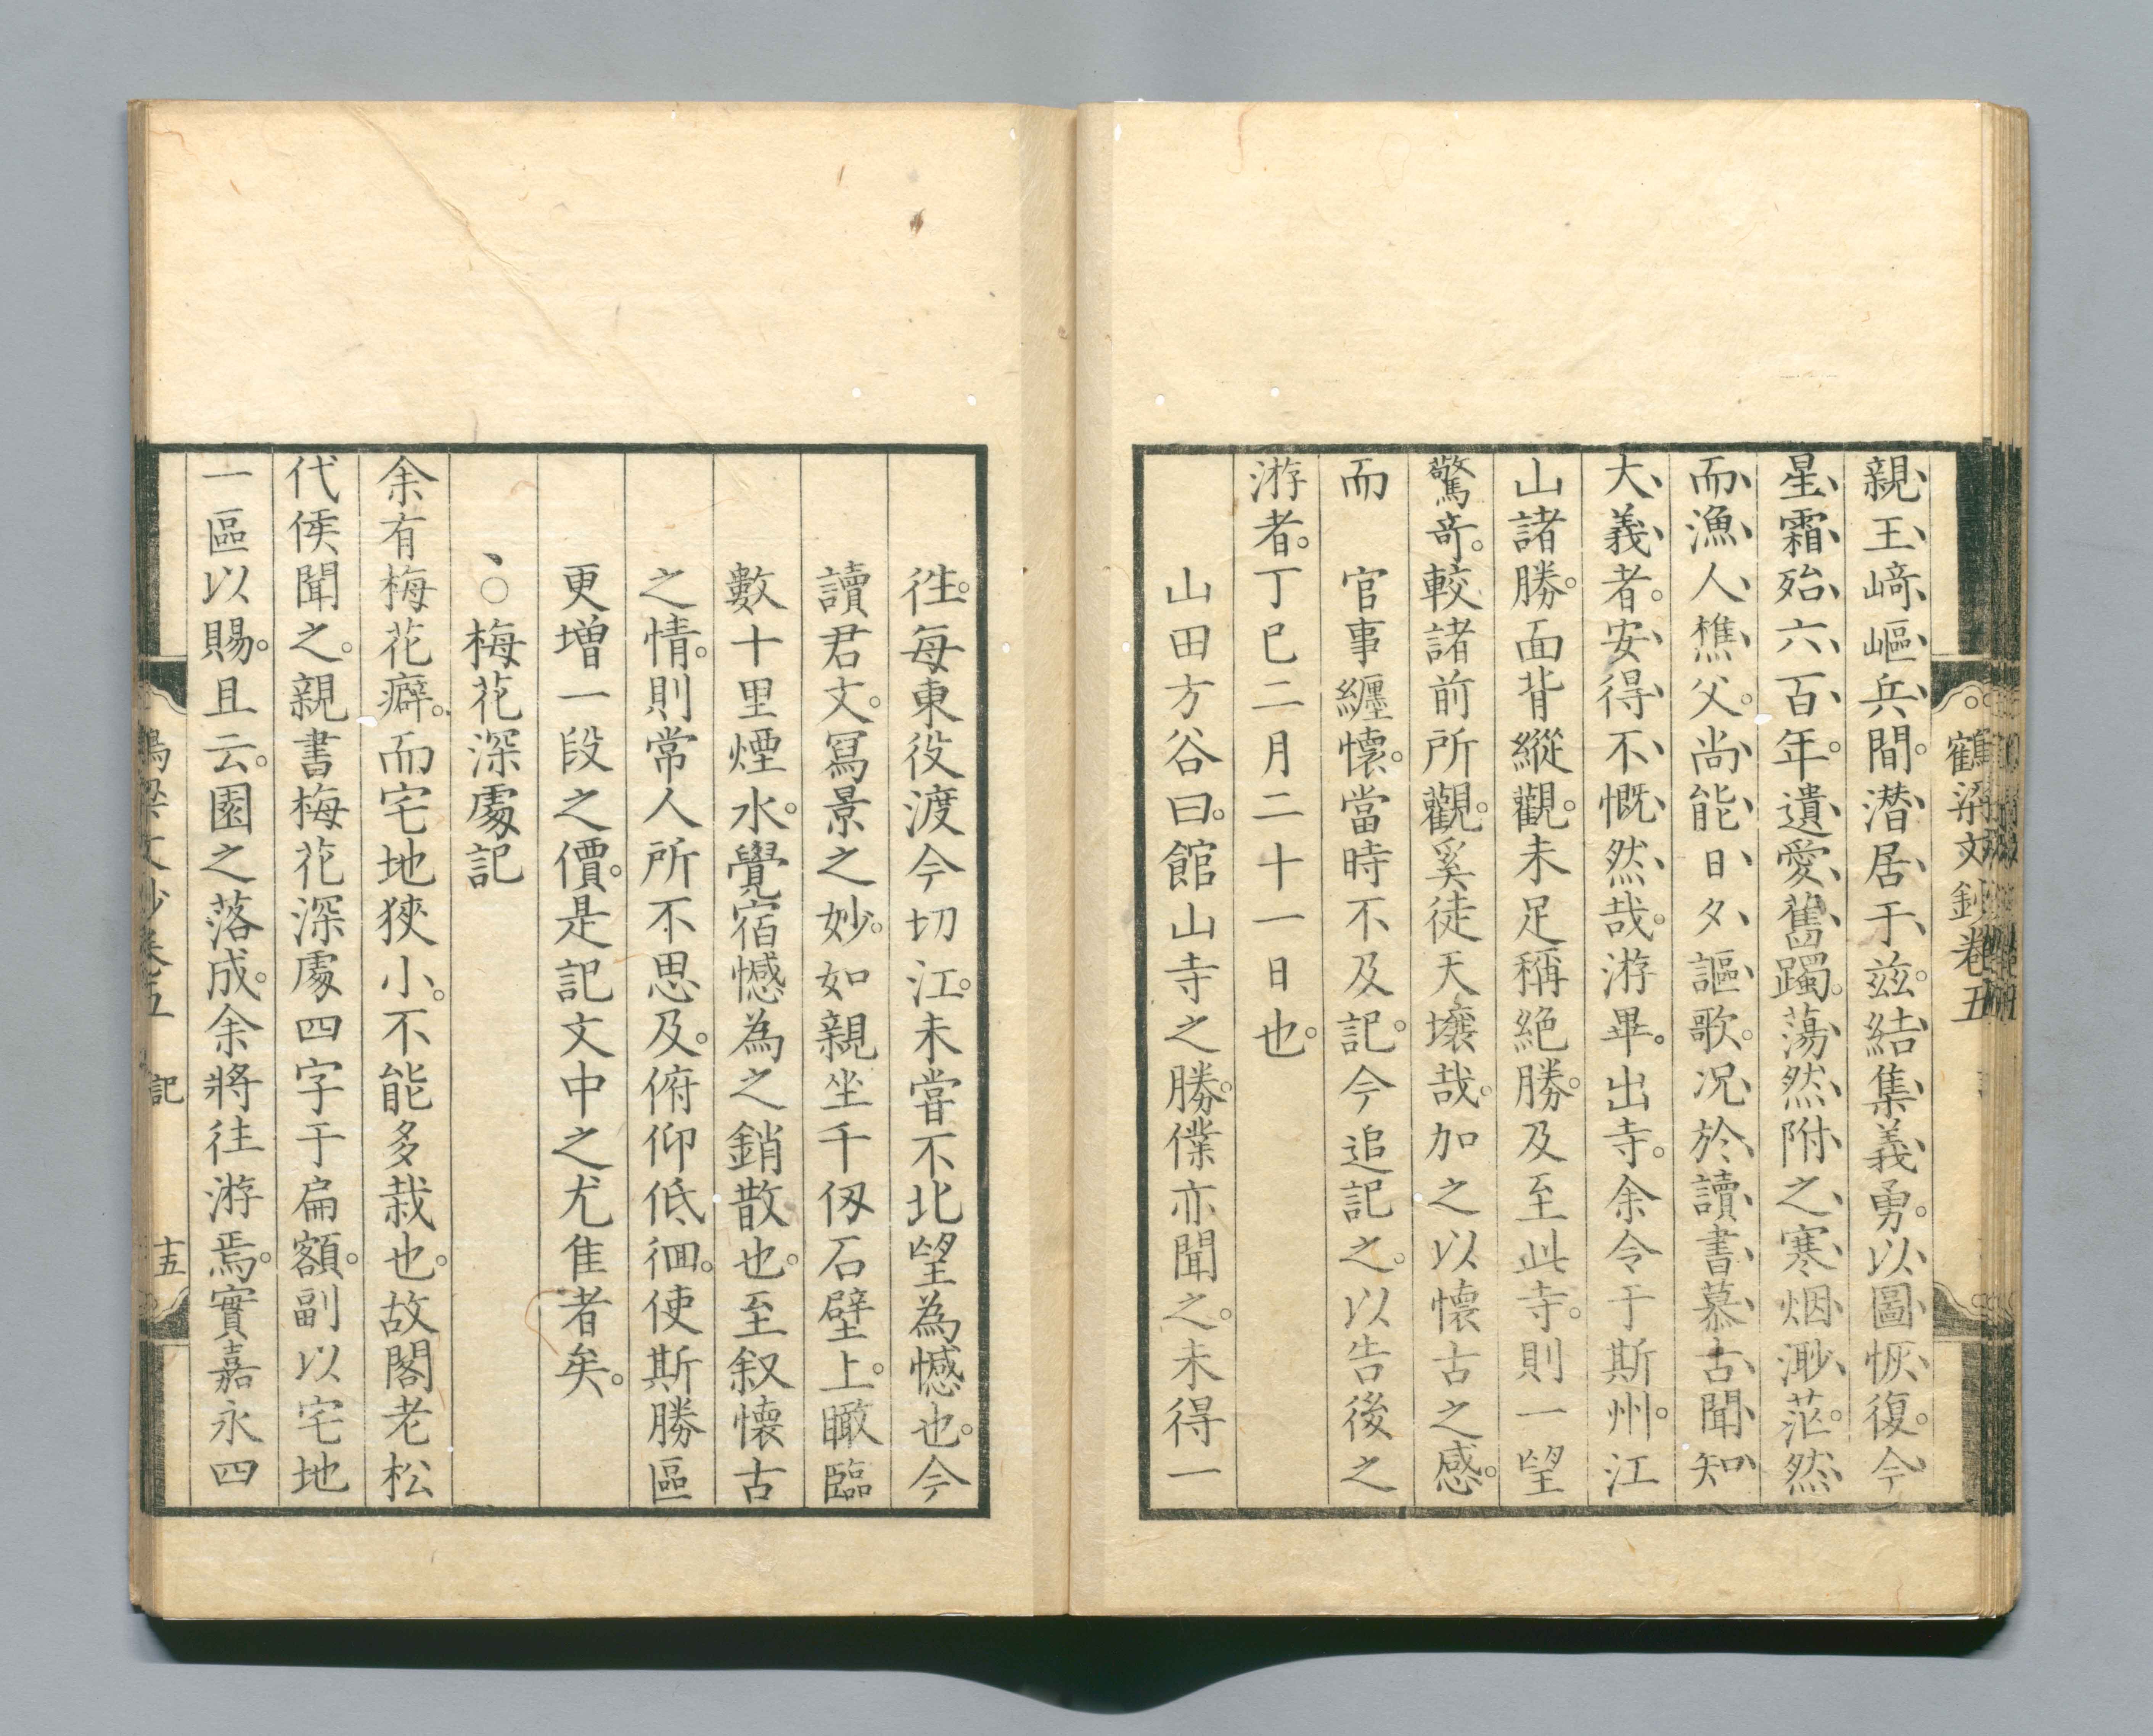 鶴梁文鈔卷五
親王﨑嶇兵間。潜居于茲。結集義勇。以圖恢復。今
星霜殆六百年。遺愛舊躅。蕩然附之寒烟渺茫。然
而漁人樵父。尚能日夕謳歌。况於讀書慕古聞知
大義者。安得不慨然哉。游畢。出寺。余令于斯州。江
山諸勝。面背縱觀。未足稱絕勝。及至此寺。則一望
驚奇。較諸前所觀。奚徒天壤哉。加之以懷古之感。
而　官事纏懷。當時不及記。今追記之。以告後之
游者。丁巳二月二十一日也。
山田方谷曰。館山寺之勝。僕亦聞之。未得一
徃。每東役渡今切江。未嘗不北望為憾也。今
讀君文。寫景之妙。如親坐千仭石壁上。瞰臨
數十里煙水。覺宿憾為之銷散也。至叙懷古
之情。則常人所不思及。俯仰低徊。使斯勝區
更增一段之價。是記文中之尤隹者矣。
、○梅花深處記
余有梅花癖。而宅地狹小。不能多栽也。故閣老松
代侯聞之。親書梅花深處四字于扁額。副以宅地
一區以賜。且云。園之落成。余將往游焉。實嘉永四
鶴梁文鈔卷五　記　十五